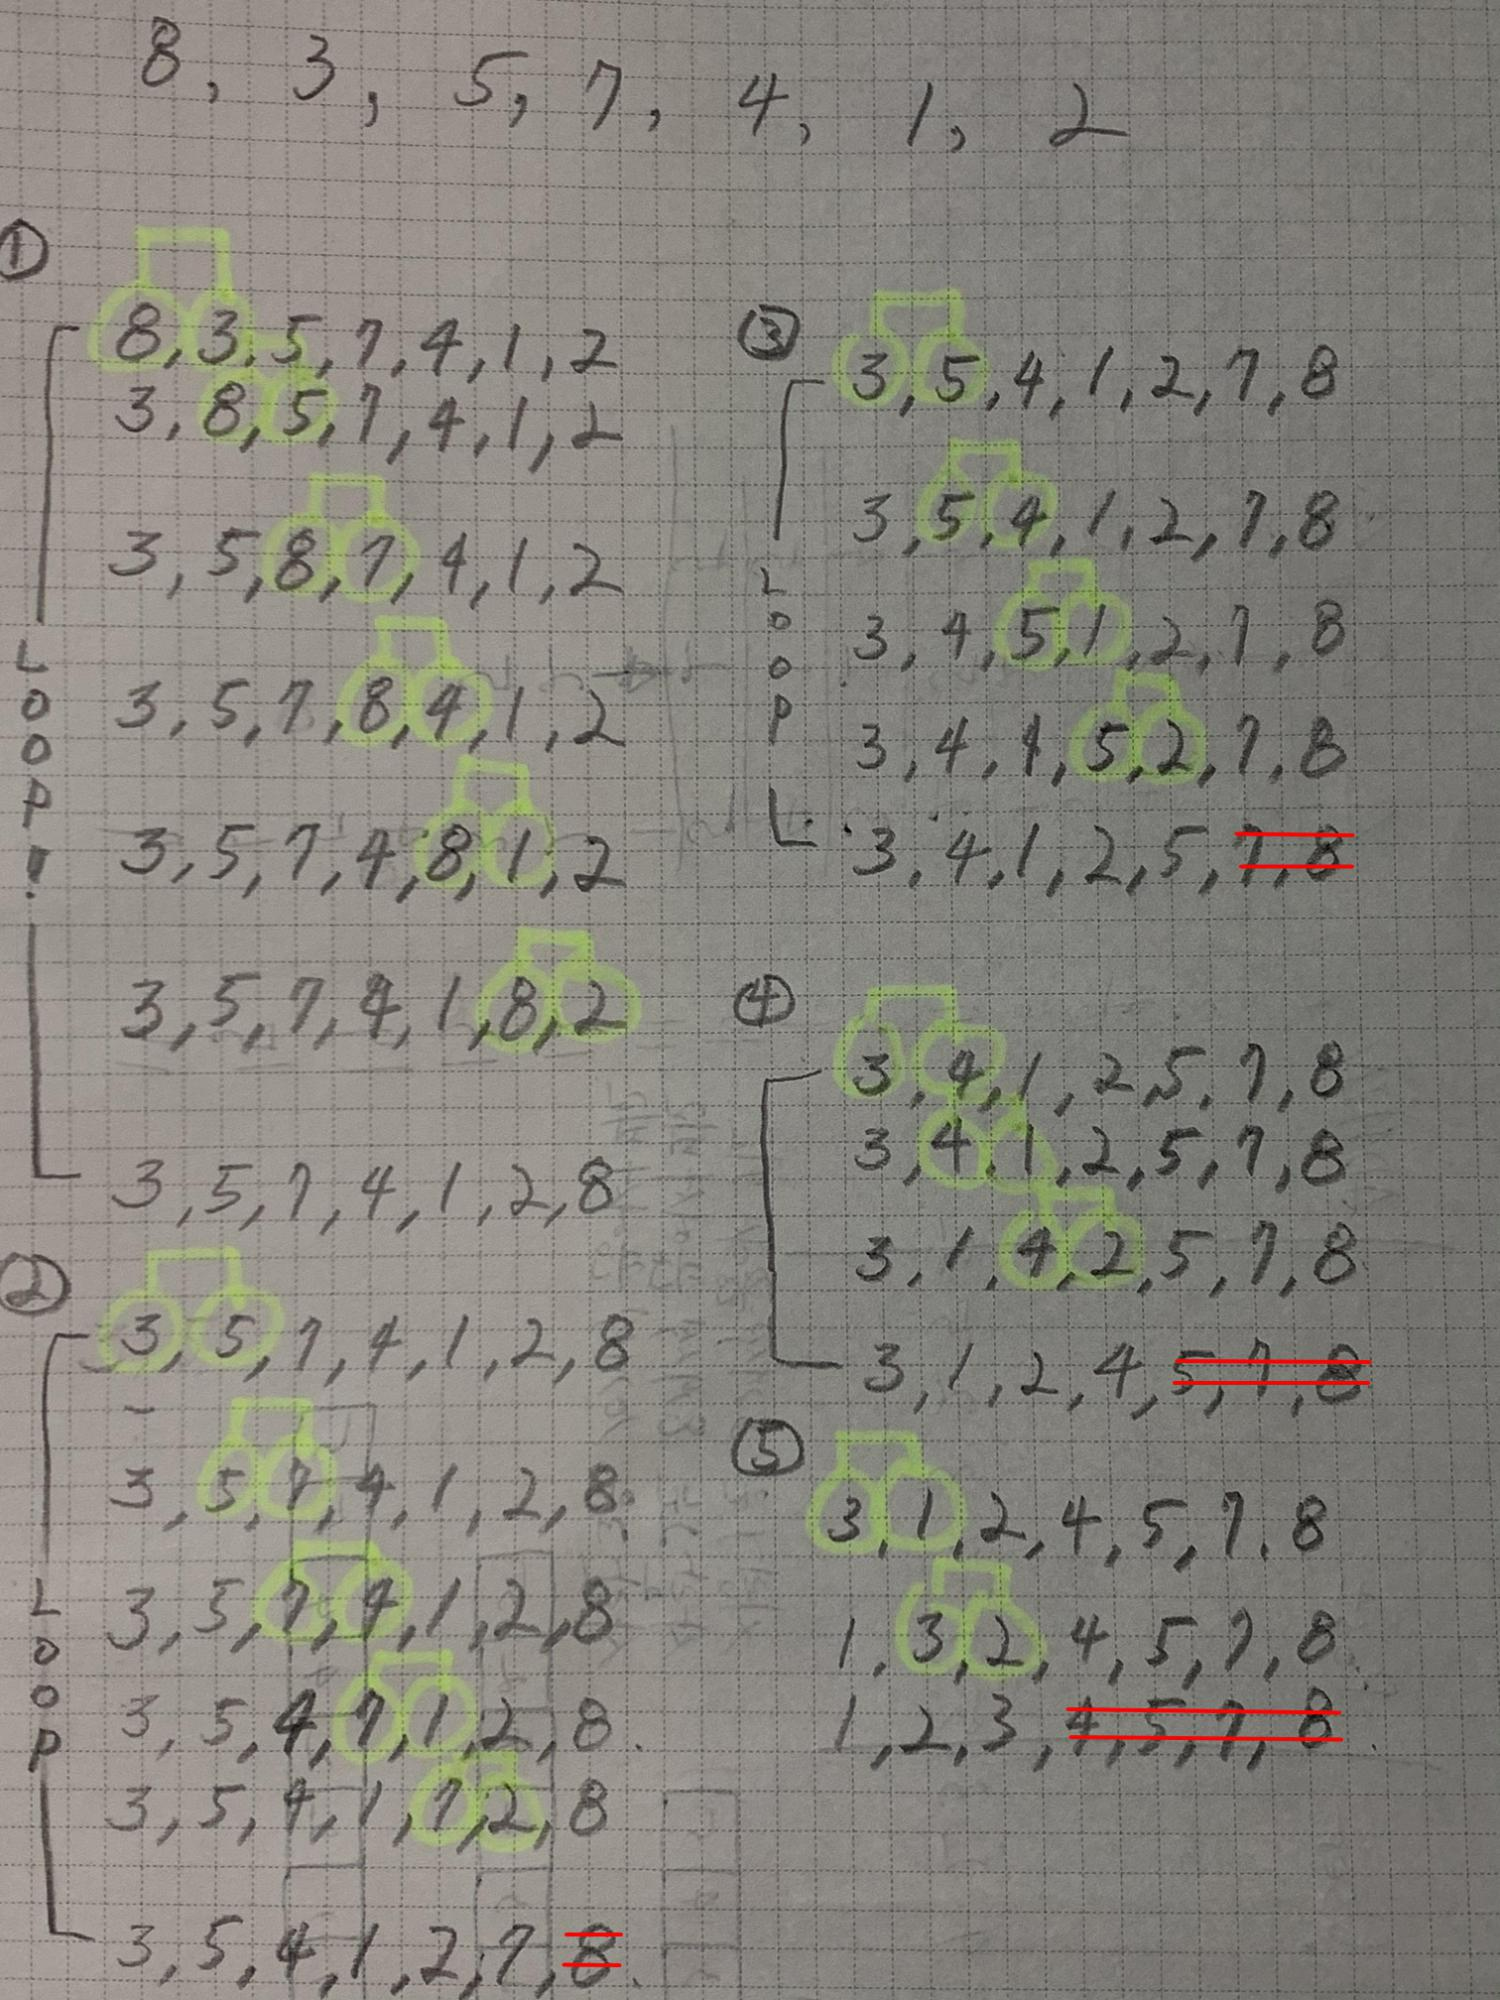 8, 3, 5, 7, 4, 1, 2
①
8, 3, 5, 7, 4, 1, 2
3, 8, 5, 7, 4, 1, 2
3, 5, 8, 7, 4, 1, 2
3, 5, 7, 8, 4, 1, 2
3, 5, 7, 4, 8, 1, 2
3, 5, 7, 4, 1, 8, 2
3, 5, 7, 4, 1, 2, 8
LOOP!
②
3, 5, 7, 4, 1, 2, 8
3, 5, 7, 4, 1, 2, 8
3, 5, 7, 4, 1, 2, 8
3, 5, 4, 7, 1, 2, 8
3, 5, 4, 1, 7, 2, 8
3, 5, 4, 1, 2, 7, 8
LOOP
③
3, 5, 4, 1, 2, 7, 8
3, 5, 4, 1, 2, 7, 8
3, 4, 5, 1, 2, 7, 8
3, 4, 1, 5, 2, 7, 8
3, 4, 1, 2, 5, 7, 8
LOOP
④
3, 4, 1, 2, 5, 7, 8
3, 4, 1, 2, 5, 7, 8
3, 1, 4, 2, 5, 7, 8
3, 1, 2, 4, 5, 7, 8
⑤
3, 1, 2, 4, 5, 7, 8
1, 3, 2, 4, 5, 7, 8
1, 2, 3, 4, 5, 7, 8